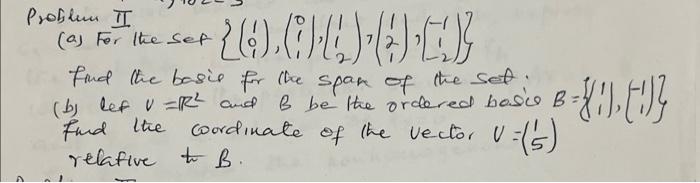 Problem II
(a) For the set {(1 0 1), (0 1 1), (1 1 2), (1 2 1), (-1 1 -2)}
Find the basis for the span of the set.
(b) let V = ℝ² and B be the ordered basis B = {(1 1), (-1 1)}
Find the coordinate of the vector V = (1 5)
relative to B.